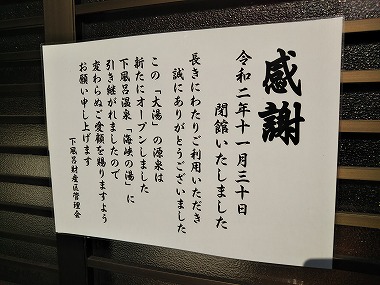 感謝
令和二年十一月三十日
閉館いたしました
長きにわたりご利用いただき
誠にありがとうございました
この「大湯」の源泉は
新たにオープンしました
下風呂温泉「海峡の湯」に
引き継がれましたので
変わらぬご愛顧を賜りますよう
お願い申し上げます
下風呂財産区管理会